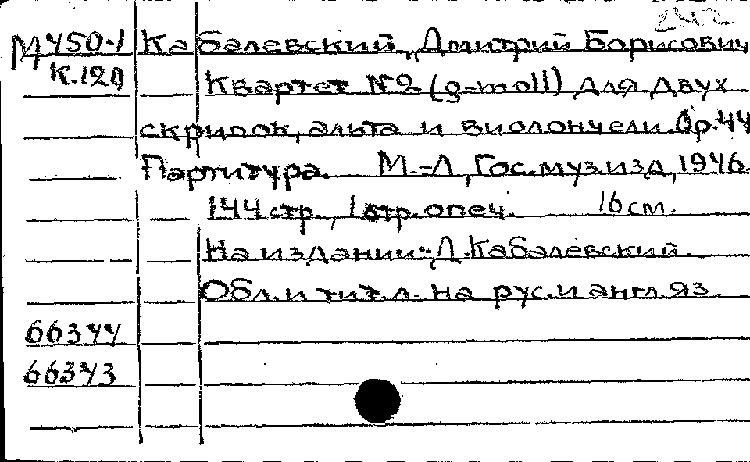 М 450-1 Кабалевский, Дмитрий Борисович
К.120 Квартет №2 (g-moll) для двух
скрипок, альта и виолончели. Ор.44
Партитура. М.-Л, Гос.муз.изд, 1946.
144 стр., 1 стр. опеч. 16 см.
На издании: Д. Кабалевский.
Обл. и тит.л. на рус. и англ яз.
66344
66343